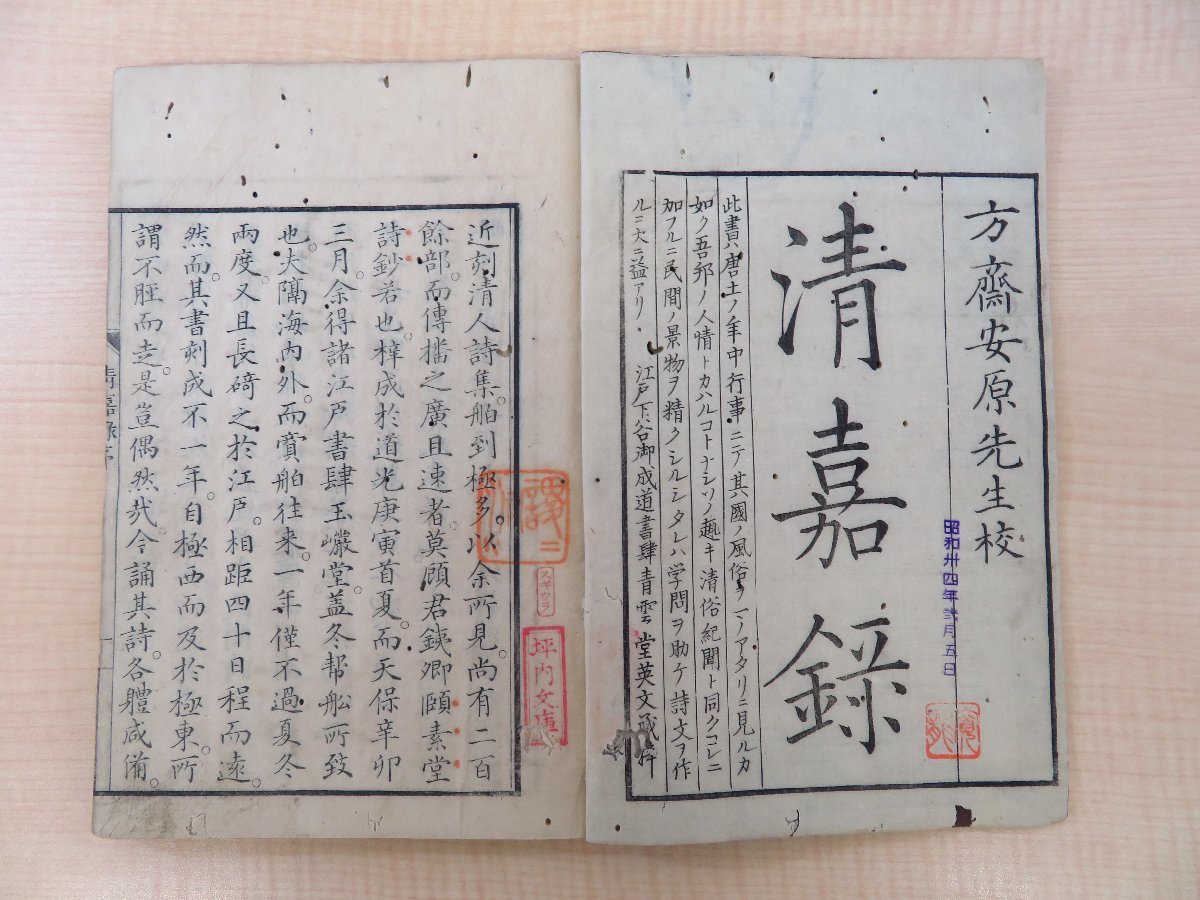 方齋安原先生校
昭和卅四年弐月五日
清嘉録
此書ハ唐土ノ年中行事ニテ其國ノ風俗ヲマノアタリニ見ルカ
如ク吾邦ノ人情トカハルコトナシソノ趣キ清俗紀聞ト同クコレニ
加フルニ民間ノ景物ヲ精クシルシタレハ学問ヲ助ケ詩文ヲ作
ルニ大ニ益アリ・ 江戸下谷御成道書肆青雲堂英文蔵梓
近刻清人詩集舶到極多。以余所見。尚有二百
餘部。而傳播之廣且速者。莫顧君鉄卿頤素堂
詩鈔若也。梓成於道光庚寅首夏。而天保辛卯
三月。余得諸江戸書肆玉巖堂。蓋冬帮舩所致
也。夫隔海内外。而賓舶往来。一年僅不過夏冬
兩度。又且長碕之於江戸。相距四十日程而遠。
然而。其書刻成不一年。自極西而及於極東。所
謂不脛而走。是豈偶然哉。今誦其詩。各體咸備。
スギウラ
坪内文庫
清嘉録序